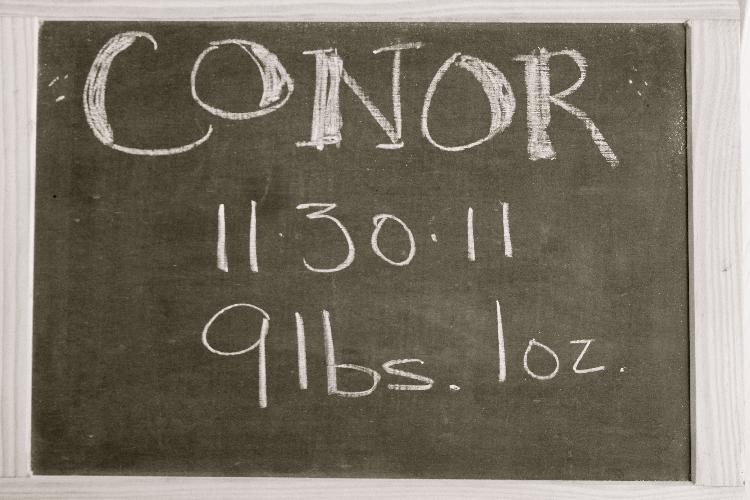 CONOR
11·30·11
9lbs. 1oz.